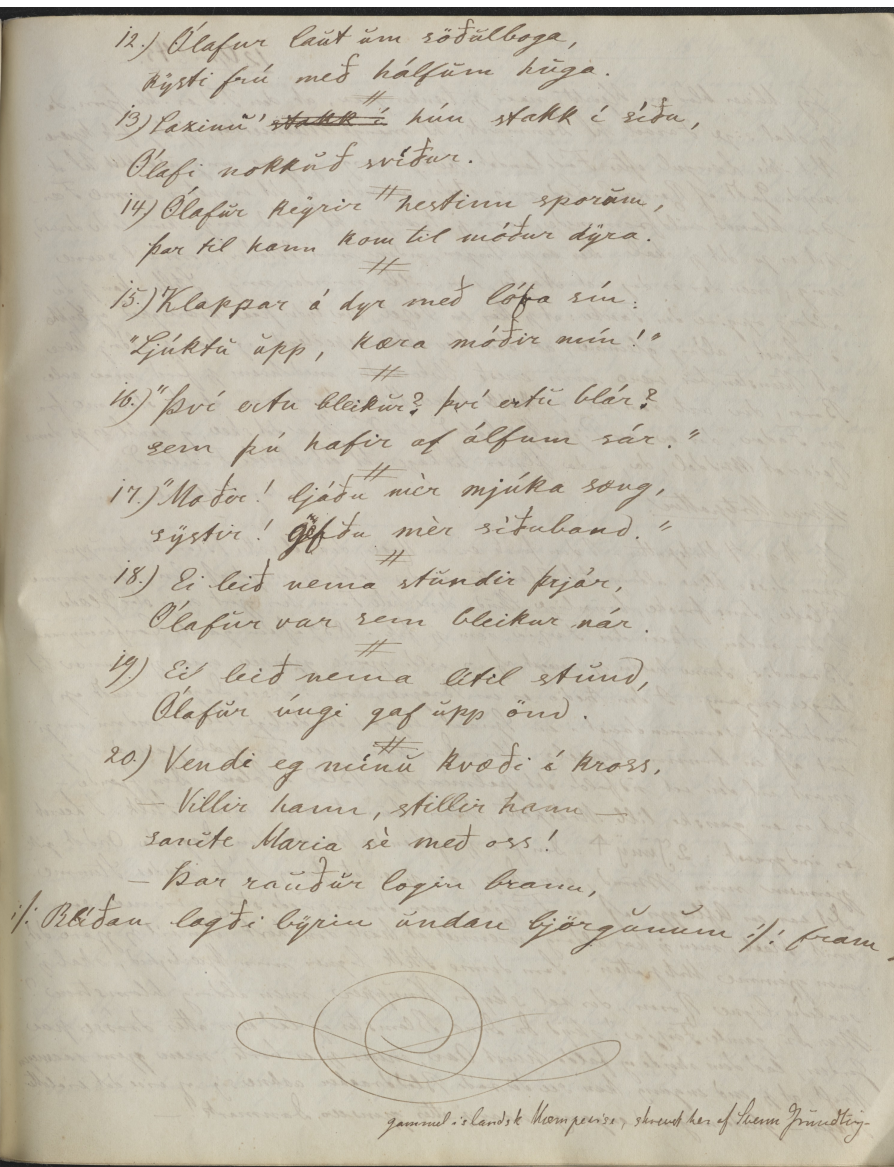 12.) Ólafur laut um söðulboga,
kysti frú með hálfum huga.
//
13) Saxinu' ~~stakk í~~ hún stakk í síðu,
Ólafi nokkuð svíður.
//
14) Ólafur keyrir hestinn sporum,
þar til hann kom til móður dyra.
//
15.) Klappar á dyr með lófa sín:
"Ljúktu upp, kæra móðir mín!"
//
16.) "Því ertu bleikur? því ertu blár?
sem þú hafir af álfum sár."
//
17.) "Moðir! ljáðu mèr mjúka sæng,
systir! gefðu mèr síðuband."
//
18.) Ei leið nema stundir þrjár,
Ólafur var sem bleikur nár.
//
19) Ei leið nema lítil stund,
Ólafur úngi gaf upp önd.
//
20.) Vendi eg mínu kvæði í kross,
— Villir hann, stillir hann —
sancte Maria sè með oss!
— Þar rauður login brann,
:/: Blíðan lagði byrin undan björgunum :/: fram.
gammel islandsk Kæmpevise, skrevet her af Svenn Grundtvig